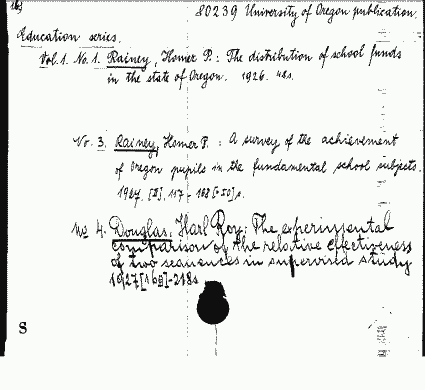 80239 University of Oregon publication.
Education series.
Vol. 1. No. 1. Rainey, Homer P.: The distribution of school funds
in the state of Oregon. 1926. 48s.
No. 3. Rainey, Homer P.: A survey of the achievement
of Oregon pupils in the fundamental school subjects.
1927. [2], 117-168 [=50] s.
No 4. Douglas, Harl Roy: The experimental
comparison of the relative effectiveness
of two sequences in supervised study
1927 -218s
S